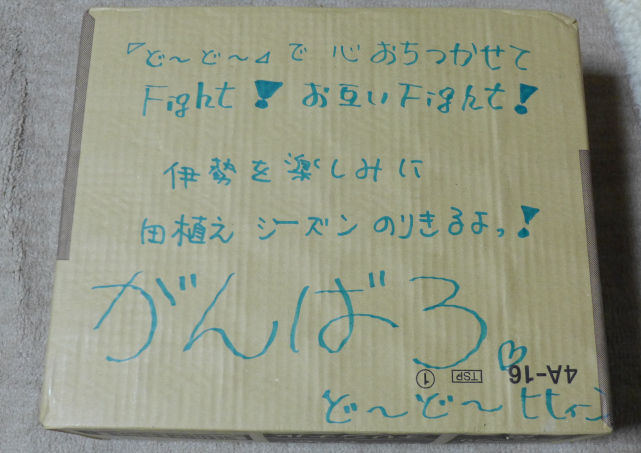 『ど〜ど〜』で 心 おちつかせて
Fight! お互い Fight!
伊勢を楽しみに
田植え シーズン のりきるよっ!
がんばろ♡
4A-16
TSP
①
ど〜ど〜 ヒヒィーン